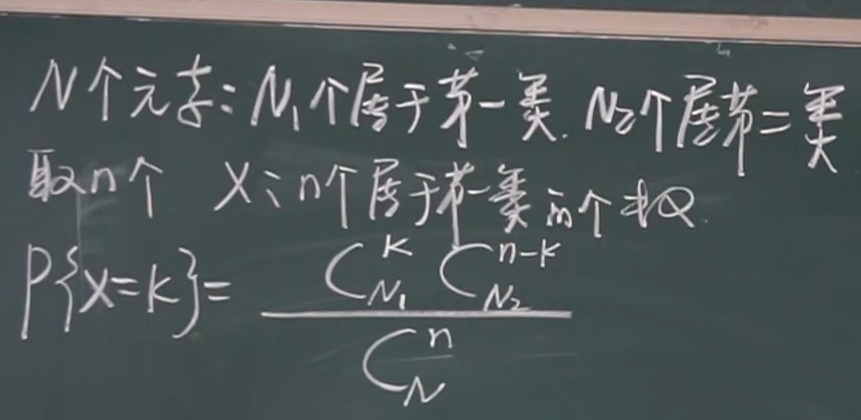 N个元素:N₁个属于第一类.N₂个属第二类
取n个 X:n个属于第一类的个数.
P{X=k}= C_{N₁}^{k} C_{N₂}^{n-k} / C_{N}^{n}